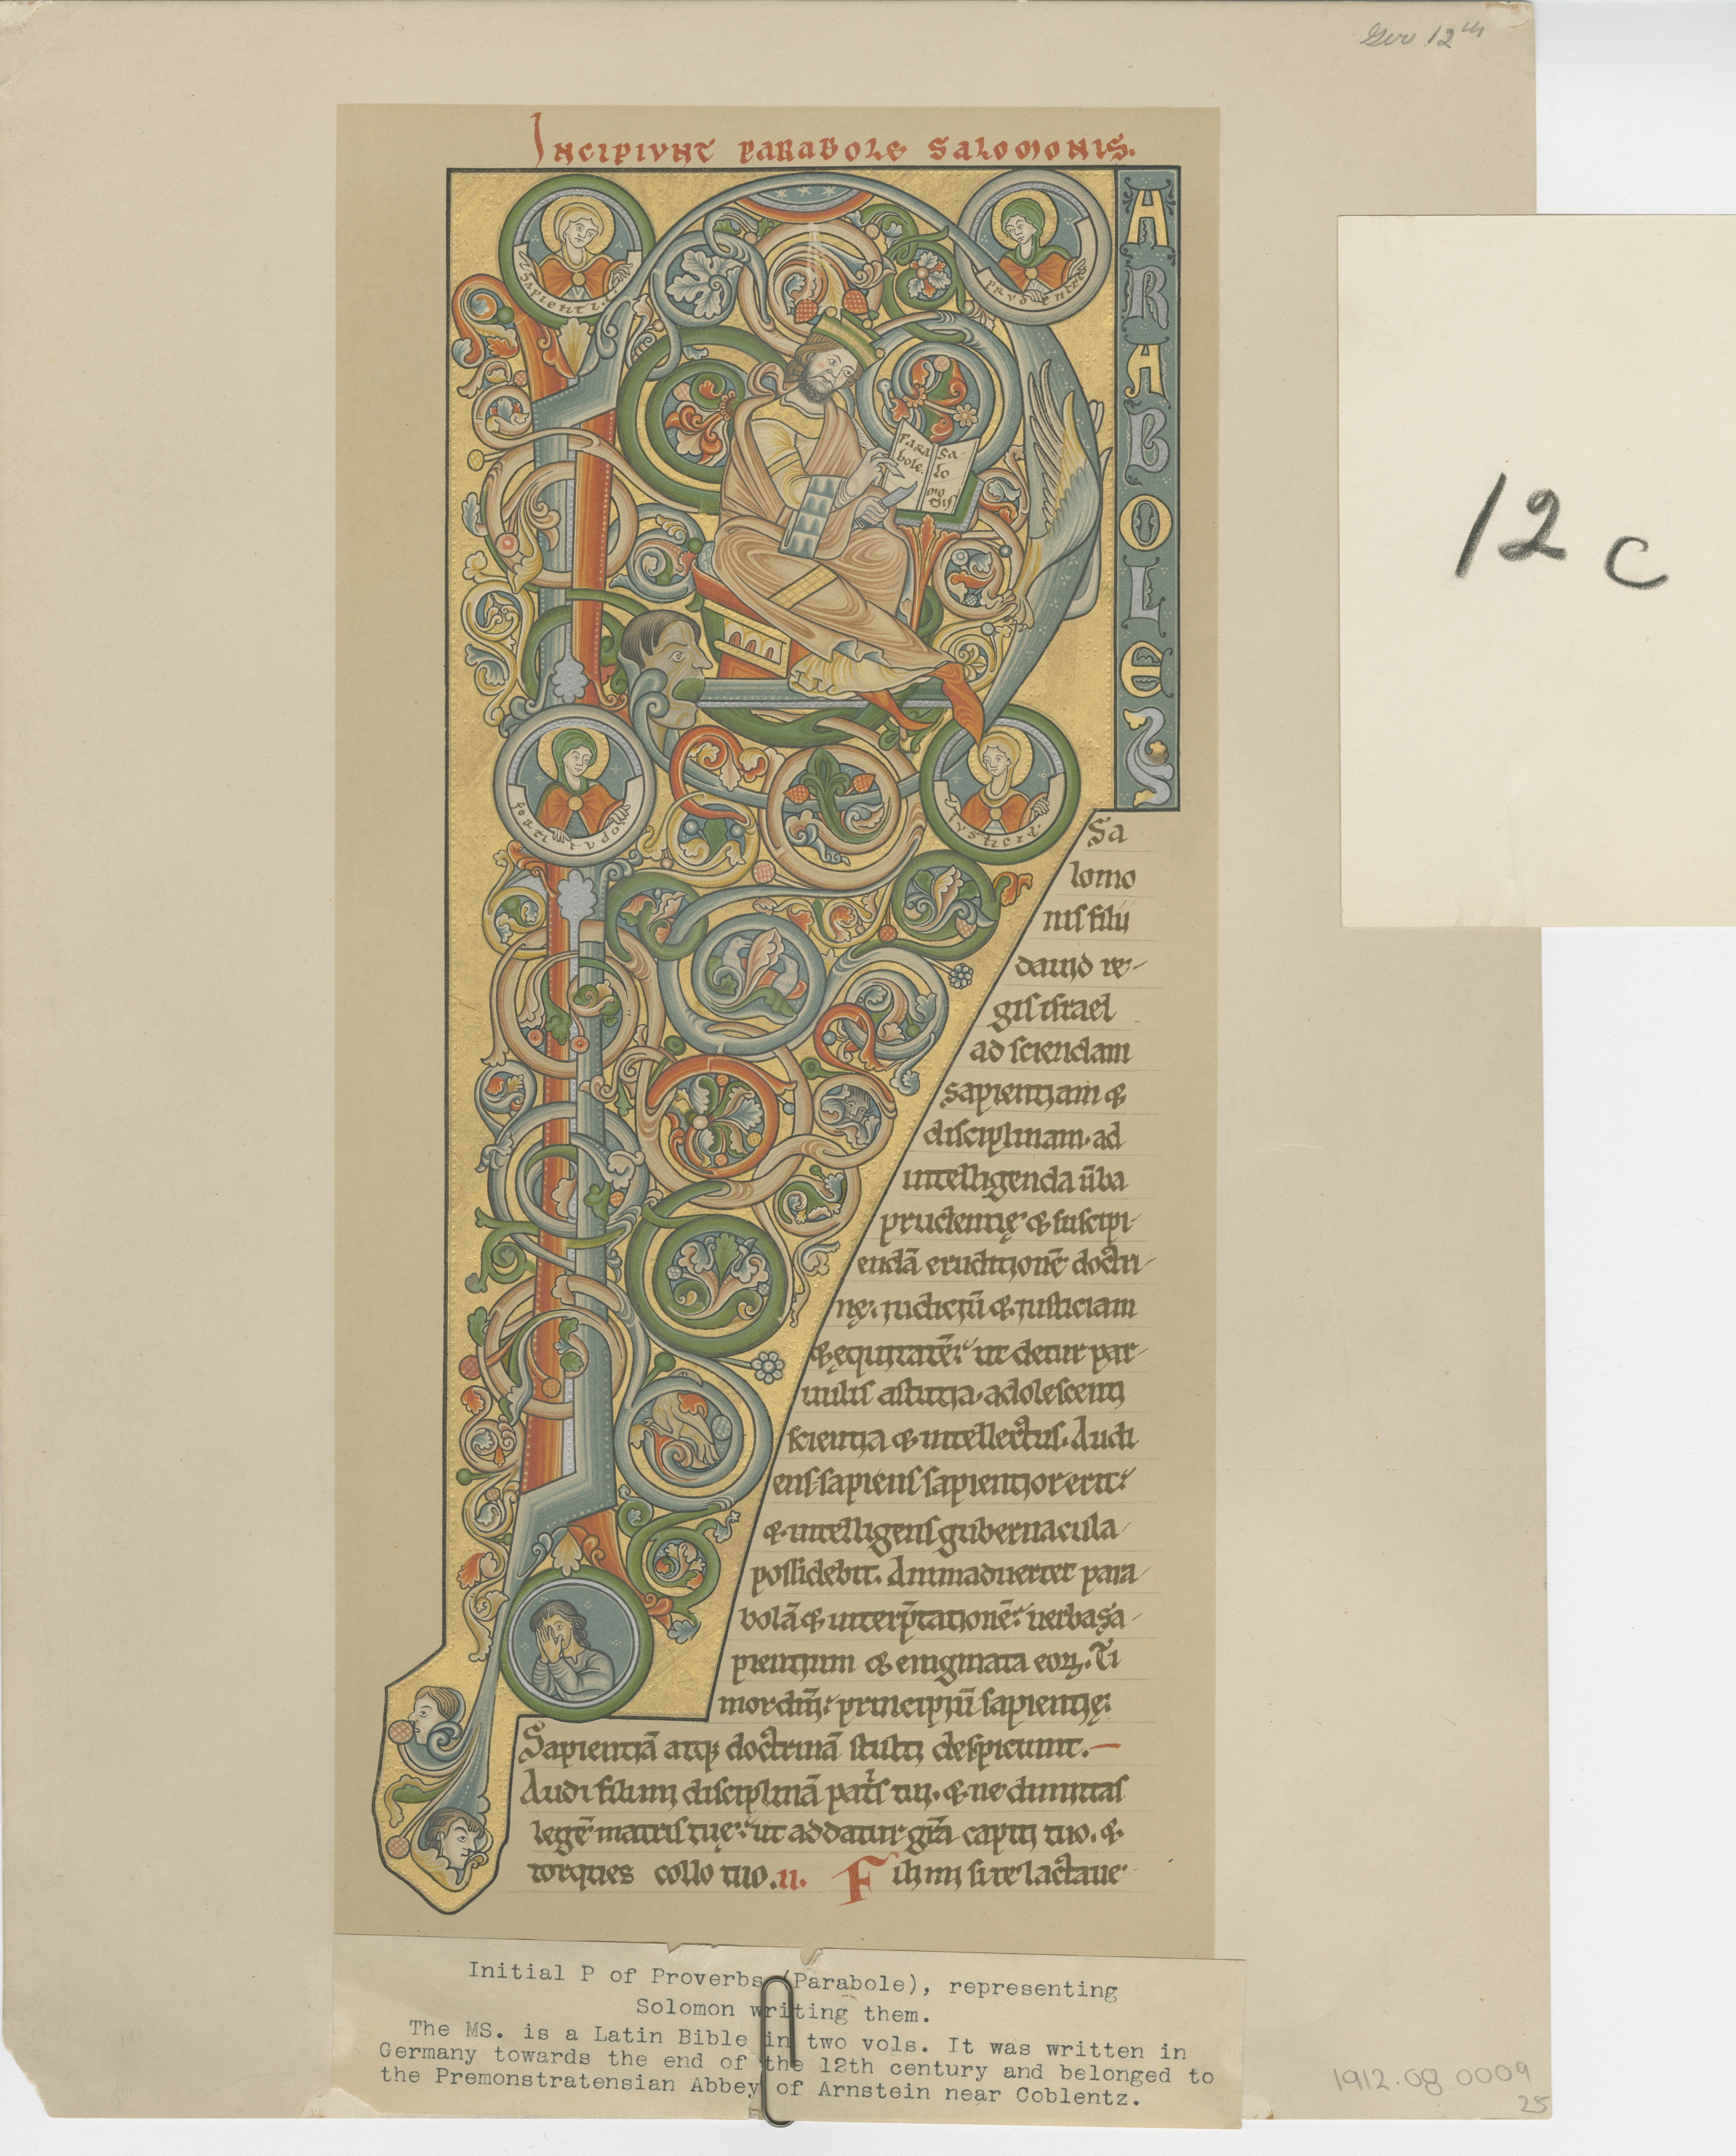 Ger 12th
Incipiunt parabole salomonis.
ARABOLES
sapientia
prudentia
Para
bole.
Sa-
lo
mo
nis
fortitudo
iusticia
12 c
Sa
lomo
nis filii
dauid re-
gis israel
ad sciendam
sapientiam &
disciplinam. ad
intelligenda ūba
prudentię & suscipi-
endā eruditionē doctri-
nę. iudiciū & iusticiam
& ęquitatē. ut detur par-
uulis astutia. adolescenti
scientia & intellectus. Audi
ens sapiens sapientior erit.
& intelligens gubernacula
possidebit. Animaduertet para-
bolā & interp̄tationē. uerba sa-
pientium & enigmata eoꝝ. Ti
mor dn̄i. principiū sapientię.
Sapientiā atq; doctrinā stulti despiciunt.
Audi fili mi disciplinā patris tui. & ne dimittas
legē matris tuę. ut addatur gr̄a capiti tuo. &
torques collo tuo. ii. Fili mi si te lactaue-
Initial P of Proverbs (Parabole), representing
Solomon writing them.
The MS. is a Latin Bible in two vols. It was written in
Germany towards the end of the 12th century and belonged to
the Premonstratensian Abbey of Arnstein near Coblentz.
1912.08.0009
25